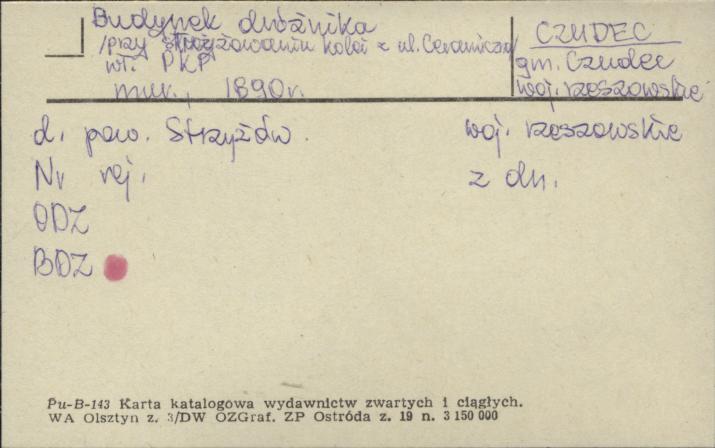 Budynek dróżnika
/przy skrzyżowaniu kolei z ul. Ceramiczną/
wł. PKP
mur., 1890r.
CZUDEC
gm. Czudec
woj. rzeszowskie
d. pow. Strzyżów woj. rzeszowskie
Nr rej. z dn.
ODZ
BDZ
Pu-B-143 Karta katalogowa wydawnictw zwartych i ciągłych.
WA Olsztyn z. 3/DW OZGraf. ZP Ostróda z. 19 n. 3 150 000